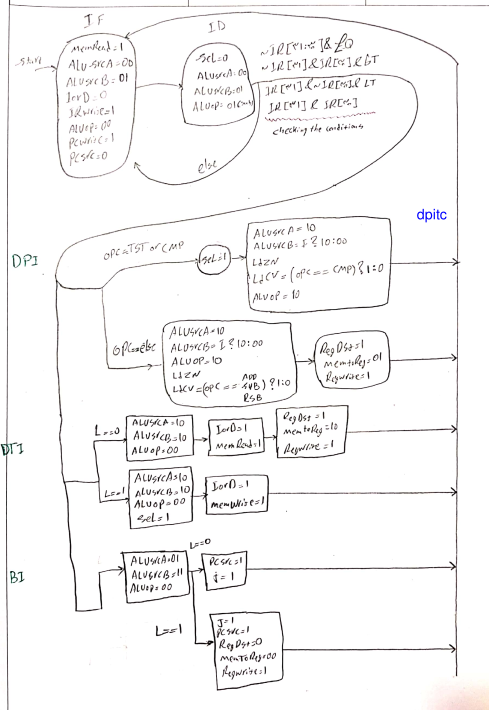 IF
start
MemRead=1
ALUsrcA=00
ALUsrcB=01
IorD=0
IRwrite=1
ALUop=00
PCwrite=1
PCsrc=0
ID
SeL=0
ALUsrcA=00
ALUsrcB=01
ALUop=01
& EQ
& GT
& LT
checking the conditions
else
dpitc
DPI
OPC=TST or CMP
SeL=1
ALUsrcA=10
ALUsrcB=I?10:00
LdZN
LdCV=(OPC==CMP)?1:0
ALUop=10
OPC=else
ALUsrcA=10
ALUsrcB=I?10:00
ALUop=10
LdZN
ADD
LdCV=(OPC==SUB)?1:0
RSB
RegDst=1
MemtoReg=01
Regwrite=1
DTI
L==0
ALUsrcA=10
ALUsrcB=10
ALUop=00
IorD=1
MemRead=1
RegDst=1
MemtoReg=10
Regwrite=1
L==1
ALUsrcA=10
ALUsrcB=10
ALUop=00
SeL=1
IorD=1
memwrite=1
BI
ALUsrcA=01
ALUsrcB=11
ALUop=00
L==0
PCsrc=1
j=1
L==1
J=1
PCsrc=1
RegDst=0
MemToReg=00
Regwrite=1